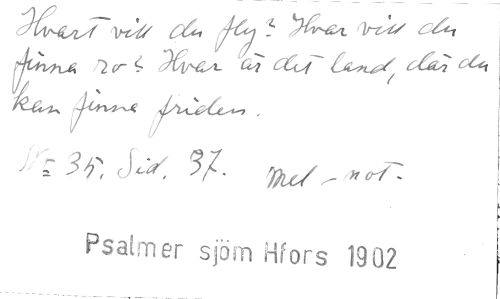 Hvart vill du fly? Hvar vill du
finna ro? Hvar är det land, där du
kan finna friden.
No 35. Sid. 37. Mel-not.
Psalmer sjöm Hfors 1902